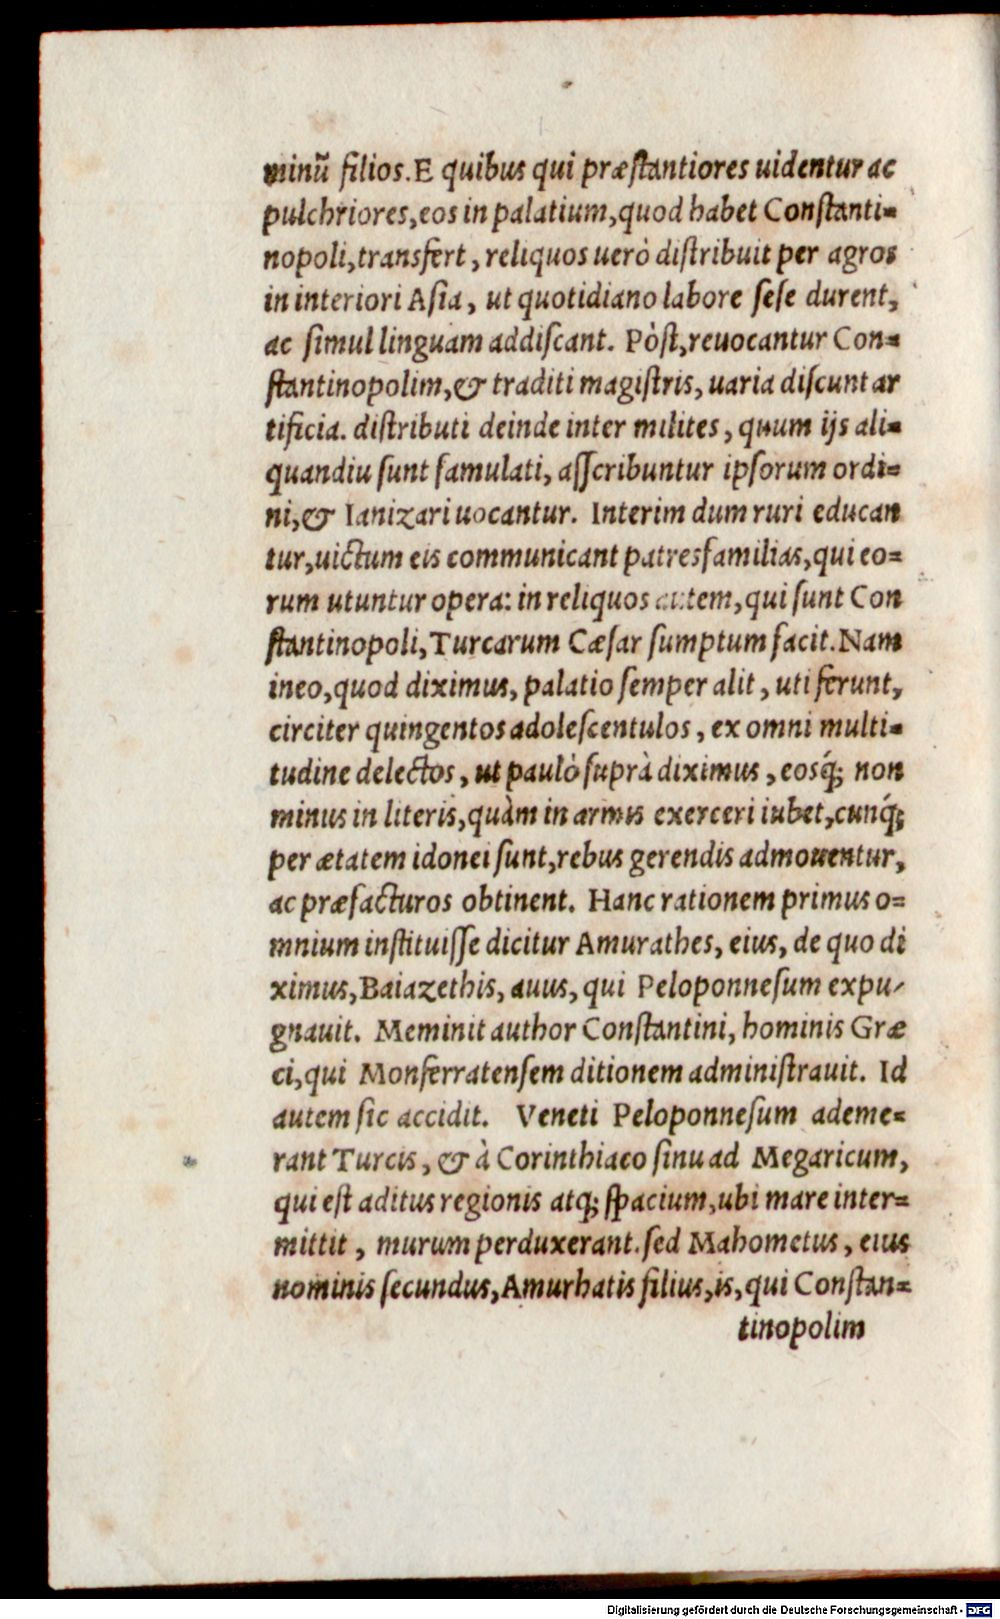 minũ filios. E quibus qui præſtantiores uidentur ac
pulchriores, eos in palatium, quod habet Conſtanti=
nopoli, transfert, reliquos uerò diſtribuit per agros
in interiori Aſia, ut quotidiano labore ſeſe durent,
ac ſimul linguam addiſcant. Pòſt, reuocantur Con=
ſtantinopolim, & traditi magiſtris, uaria diſcunt ar
tificia. diſtributi deinde inter milites, quum ijs ali=
quandiu ſunt famulati, aſſcribuntur ipſorum ordi=
ni, & Ianizari uocantur. Interim dum ruri educan
tur, uictum eis communicant patresfamilias, qui eo=
rum utuntur opera: in reliquos autem, qui ſunt Con
ſtantinopoli, Turcarum Cæſar ſumptum facit. Nam
in eo, quod diximus, palatio ſemper alit, uti ferunt,
circiter quingentos adoleſcentulos, ex omni multi=
tudine delectos, ut paulò ſuprà diximus, eosq́; non
minus in literis, quàm in armis exerceri iubet, cunq́;
per ætatem idonei ſunt, rebus gerendis admouentur,
ac præfacturos obtinent. Hanc rationem primus o=
mnium inſtituiſſe dicitur Amurathes, eius, de quo di
ximus, Baiazethis, auus, qui Peloponneſum expu/
gnauit. Meminit author Conſtantini, hominis Græ
ci, qui Monferratenſem ditionem adminiſtrauit. Id
autem ſic accidit. Veneti Peloponneſum ademe=
rant Turcis, & à Corinthiaco ſinu ad Megaricum,
qui eſt aditus regionis atq; ſpacium, ubi mare inter=
mittit, murum perduxerant. ſed Mahometus, eius
nominis ſecundus, Amurhatis filius, is, qui Conſtan=
tinopolim
Digitalisierung gefördert durch die Deutsche Forschungsgemeinschaft - DFG